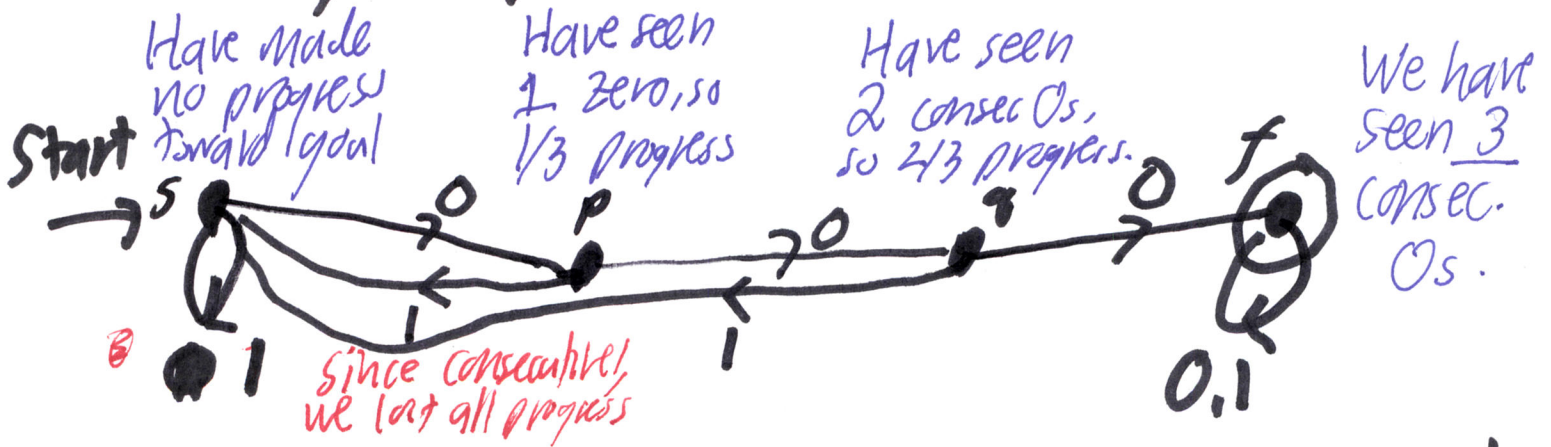 Have made
no progress
toward goal
Have seen
1 zero, so
1/3 progress
Have seen
2 consec 0s,
so 2/3 progress.
We have
seen 3
consec.
0s.
Start
s
0
p
0
q
0
f
1
1
1
0,1
since consecutive,
we lost all progress